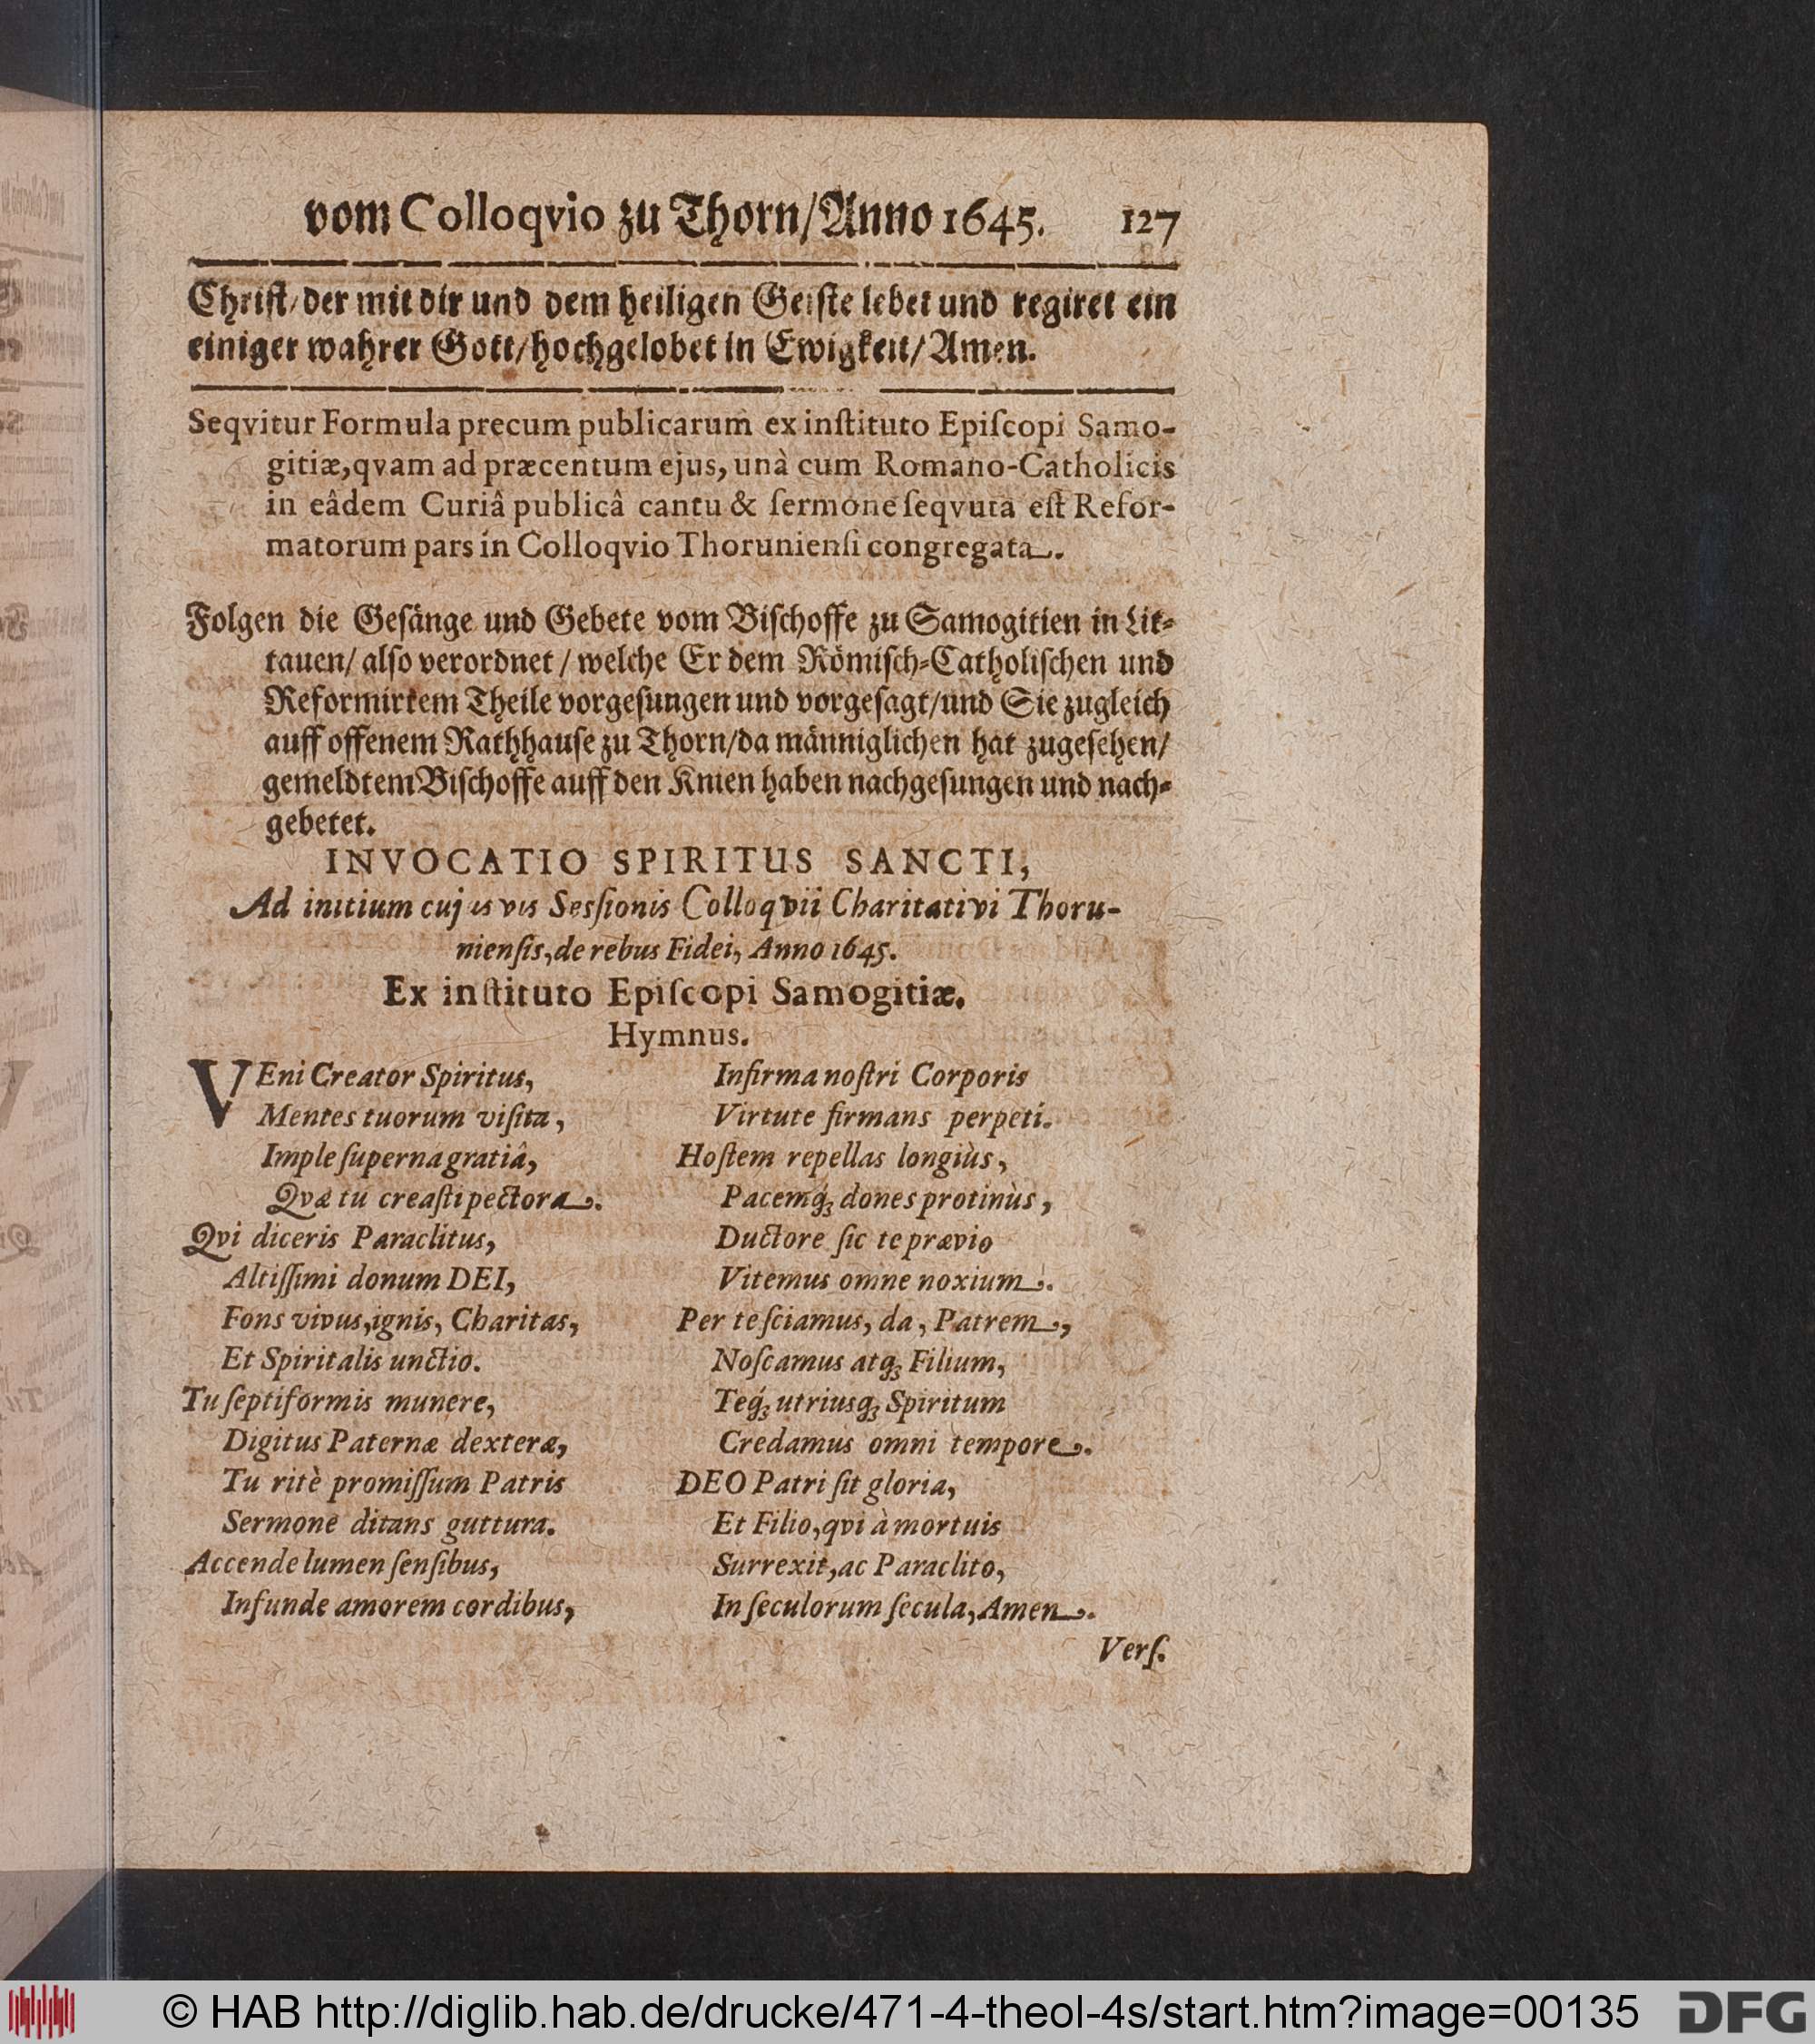 vom Colloqvio zu Thorn/Anno 1645. 127
Christ/der mit dir und dem heiligen Geiste lebet und regiret ein
einiger wahrer Gott/hochgelobet in Ewigkeit/Amen.
Seqvitur Formula precum publicarum ex inſtituto Epiſcopi Samo-
gitiæ,qvam ad præcentum ejus, unà cum Romano-Catholicis
in eâdem Curiâ publicâ cantu & ſermone ſeqvuta eſt Refor-
matorum pars in Colloqvio Thorunienſi congregata.
Folgen die Geſänge und Gebete vom Biſchoffe zu Samogitien in Lit-
tauen/ alſo verordnet / welche Er dem Römiſch-Catholiſchen und
Reformirtem Theile vorgeſungen und vorgeſagt/und Sie zugleich
auff offenem Rathhauſe zu Thorn/da männiglichen hat zugeſehen/
gemeldtem Biſchoffe auff den Knien haben nachgeſungen und nach-
gebetet.
INVOCATIO SPIRITUS SANCTI,
Ad initium cujusvis Sesſionis Colloqvii Charitativi Thoru-
nienſis,de rebus Fidei, Anno 1645.
Ex inſtituto Epiſcopi Samogitiæ.
Hymnus.
VEni Creator Spiritus,
Mentes tuorum viſita,
Imple ſuperna gratiâ,
Qvæ tu creaſti pectora.
Qvi diceris Paraclitus,
Altiſſimi donum DEI,
Fons vivus,ignis, Charitas,
Et Spiritalis unctio.
Tu ſeptiformis munere,
Digitus Paternæ dexteræ,
Tu ritè promiſſum Patris
Sermone ditans guttura.
Accende lumen ſenſibus,
Infunde amorem cordibus,
Infirma noſtri Corporis
Virtute firmans perpeti.
Hoſtem repellas longiùs,
Pacemq́; dones protinùs,
Ductore ſic te prævio
Vitemus omne noxium.
Per te ſciamus, da, Patrem,
Noſcamus atq; Filium,
Teq́; utriusq; Spiritum
Credamus omni tempore.
DEO Patri ſit gloria,
Et Filio,qvi à mortuis
Surrexit,ac Paraclito,
In ſeculorum ſecula,Amen.
Verſ.
© HAB http://diglib.hab.de/drucke/471-4-theol-4s/start.htm?image=00135
DFG